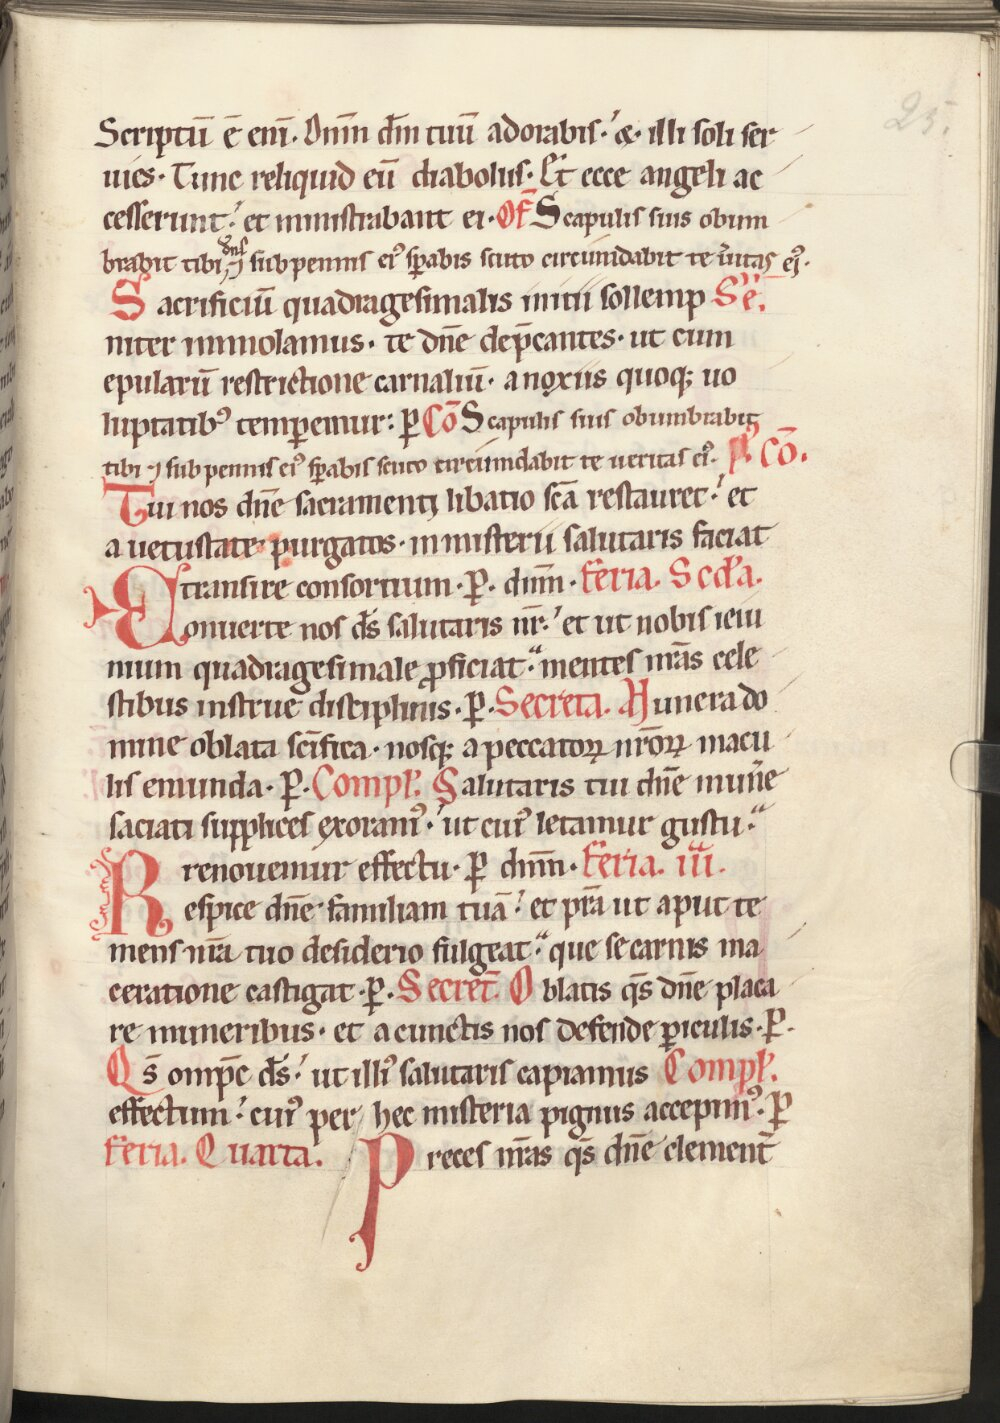 25.
Scriptū ē eni. Dnm̄ dm̄ tuū adorabis. & illi soli ser
uies. Tunc reliquid eū diabolus. Et ecce angeli ac
cesserunt. et ministrabant ei. Of̄ Scapulis suis obum
brabit tibi dn̄s ⁊ sub pennis ei᷒ sp̄abis scuto circumdabit te ūitas ei᷒.
Sacrificiū quadragesimalis initii sollemp Sē.
niter immolamus. te dn̄e dep̄cantes. ut cum
epularū restrictione carnaliū. a noxiis quoq; uo
luptatib᷒ temp̄emur: ꝑ Cō Scapulis suis obumbrabit
tibi ⁊ sub pennis ei᷒ sp̄abis scuto circumdabit te ueritas ei᷒. P᷒ cō.
Tui nos dn̄e sacramenti libatio sc̄a restauret. et
a uetustate purgatos. in misterii salutaris faciat
transire consortium. P. dnm̄. Feria. Scd̄a.
Conuerte nos ds̄ salutaris nr̄. et ut nobis ieiu
nium quadragesimale ꝓficiat. mentes nr̄as cele
stibus instrue disciplinis. P. Secreta. Munera do
mine oblata sc̄ifica. nosq; a peccatoꝝ nr̄oꝝ macu
lis emunda. P. Compl̄. Salutaris tui dn̄e mun̄e
saciati supplices exoram᷒. ut cui᷒ letamur gustu.
renouemur effectu. P dnm̄. Feria. iii.
Respice dn̄e familiam tuā. et pr̄a ut aput te
mens nr̄a tuo desiderio fulgeat. que se carnis ma
ceratione castigat. P. Secret̄. Oblatis qs̄ dn̄e placa
re muneribus. et a cunctis nos defende ꝑiculis. P.
Qs̄ omp̄c ds̄. ut illi᷒ salutaris capiamus Compl̄.
effectum. cui᷒ per hec misteria pignus accepim᷒. P
Feria. Quarta. Preces nr̄as qs̄ dn̄e clement̄